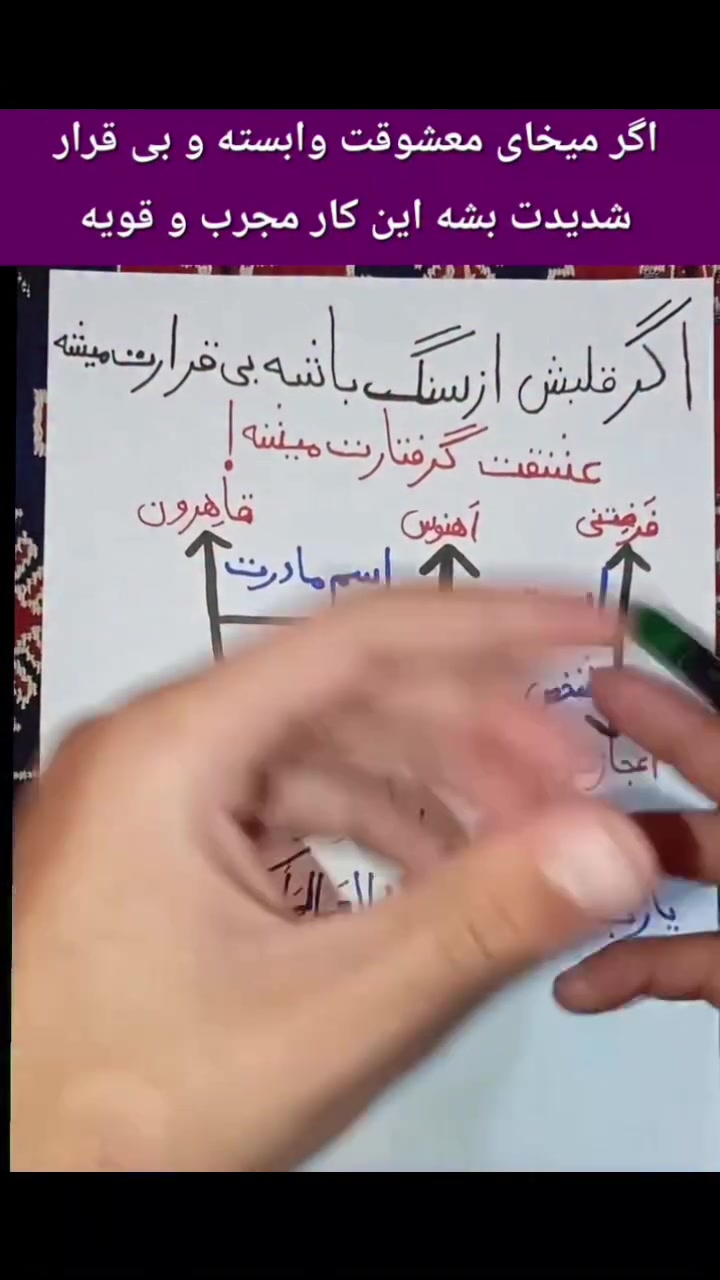 اگر میخای معشوقت وابسته و بی قرار
شدیدت بشه این کار مجرب و قویه
اگر قلبش از سنگ باشه بی قرارت میشه
عشقت گرفتارت میشه!
فَرضِتنی اَهنوس قاهِرون
اسم مادرت
یارب